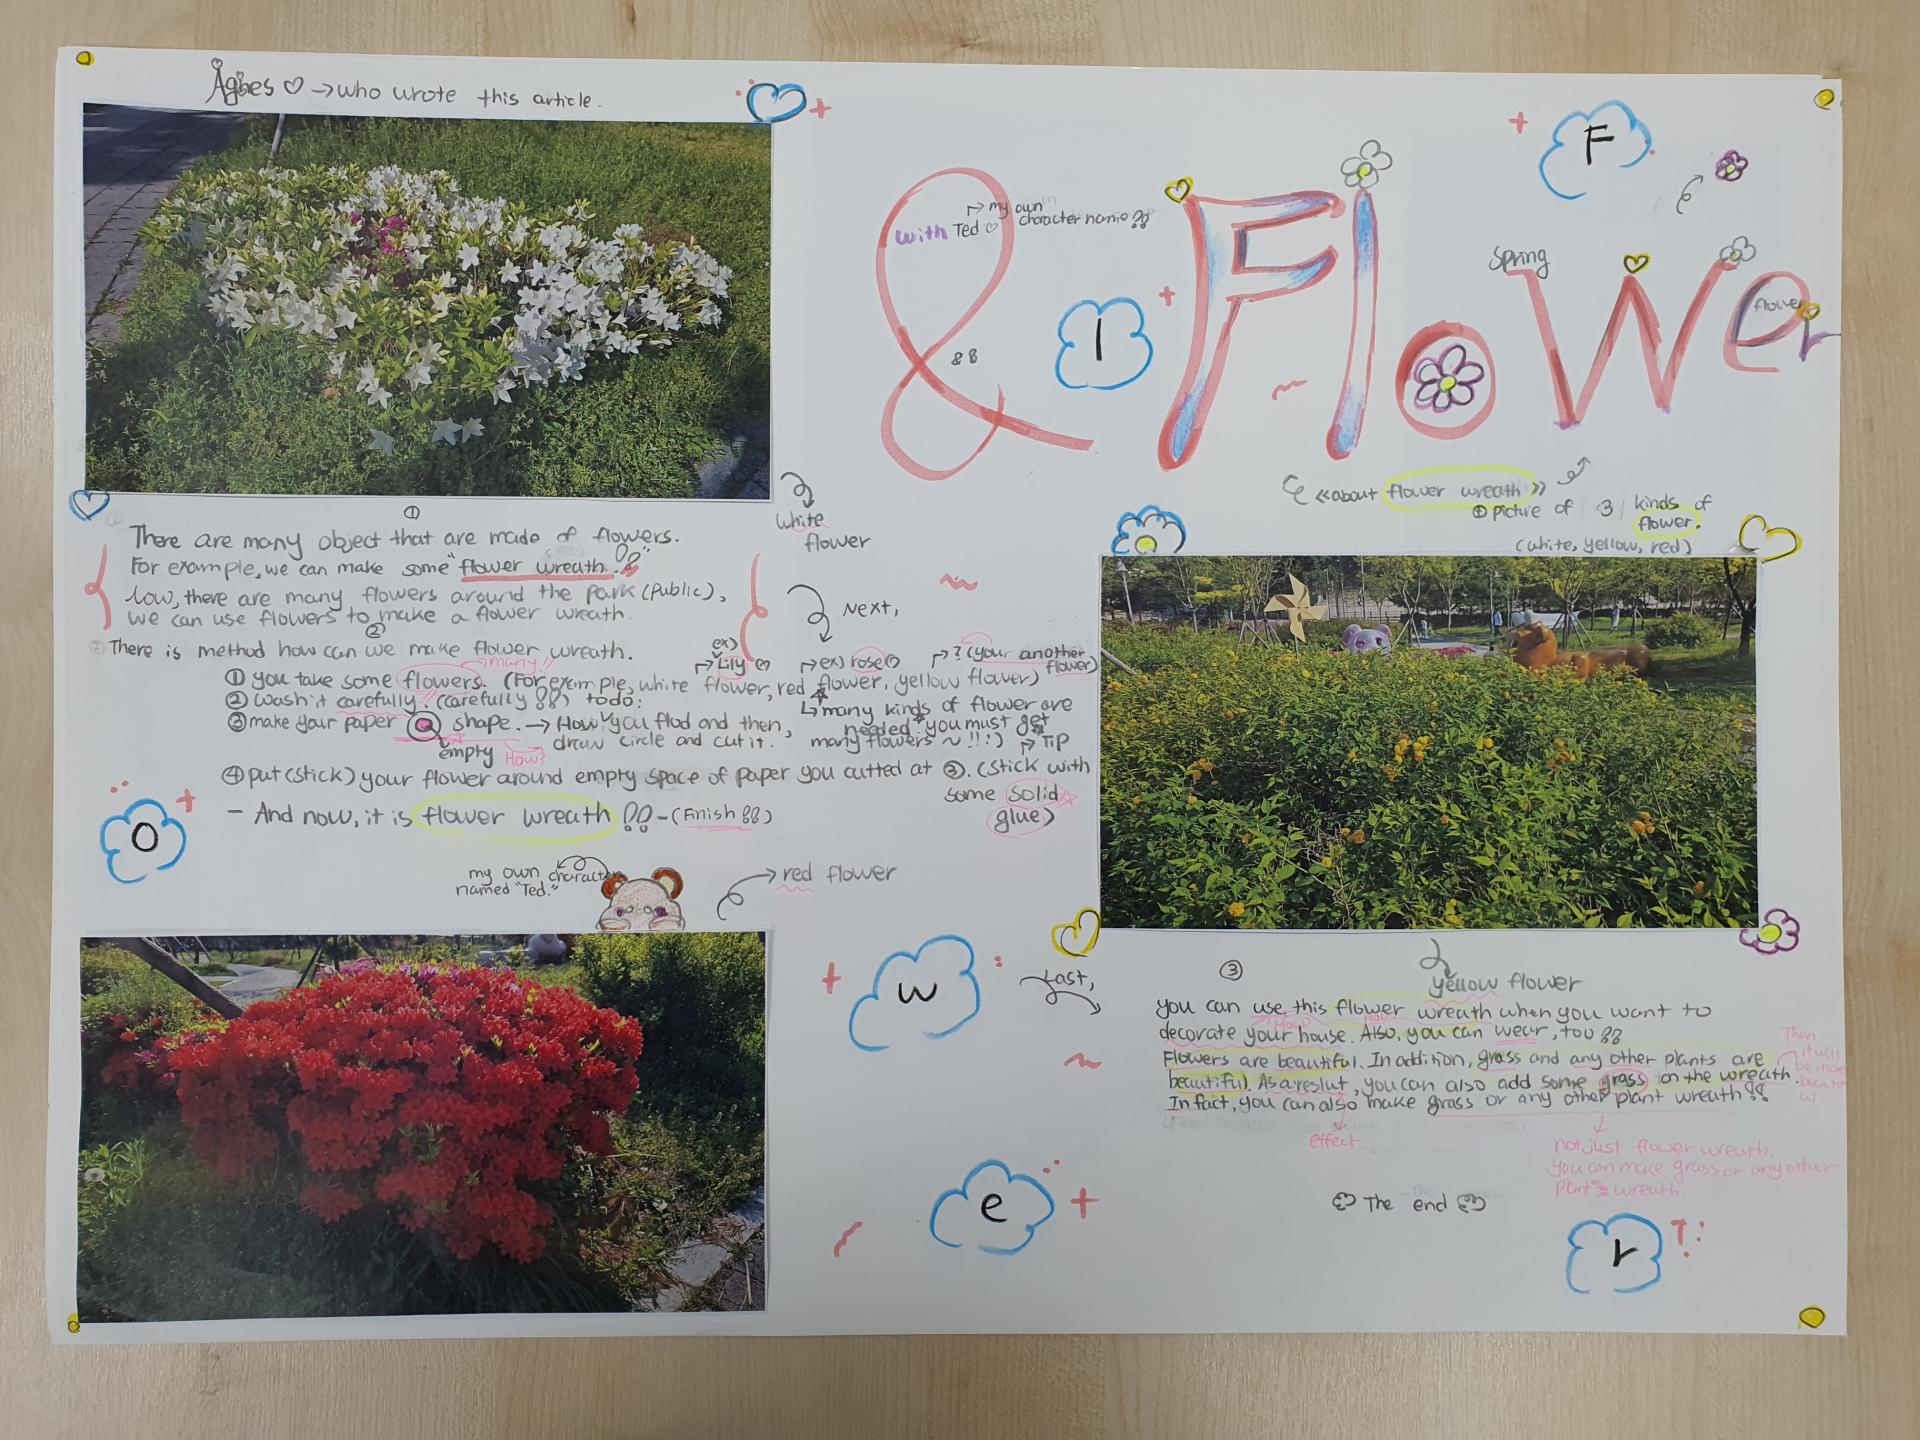 Agnes ♡ → who wrote this article.
& Flower
with Ted ♡
→ my own
character name !!
F
l
Spring
flower
《about flower wreath》
⊕ picture of 3 kinds of
flower.
(white, yellow, red)
white
flower
①
There are many object that are made of flowers.
For example, we can make some "flower wreath.!!"
there are many flowers around the park (Public),
we can use flowers to make a flower wreath.
②
There is method how can we make flower wreath.
→ many!!
Next,
ex)
→ Lily ♡
→ ex) rose
→ ? (your another
flower)
① you take some flowers. (For example, white flower, red flower, yellow flower)
② wash it carefully! (carefully !!) todo:
↳ many kinds of flower are
needed you must get
many flowers ~ !! :)
③ make your paper shape. → How? you flod and then,
draw circle and cut it.
empty
How?
→ TIP
④ put (stick) your flower around empty space of paper you cutted at ③. (stick with
some solid
glue)
- And now, it is flower wreath !! - (Finish !!)
o
my own character
named "Ted."
red flower
w
Last,
yellow flower
③
you can use this flower wreath when you want to
decorate your house. Also, you can wear, too !!
Flowers are beautiful. In addition, grass and any other plants are
beautiful. As a reslut, you can also add some grass on the wreath.
In fact, you can also make grass or any other plant wreath !!
Then,
it will
be more
effect
not just flower wreath,
you can make grass or any other
plant wreath
The end
e
r